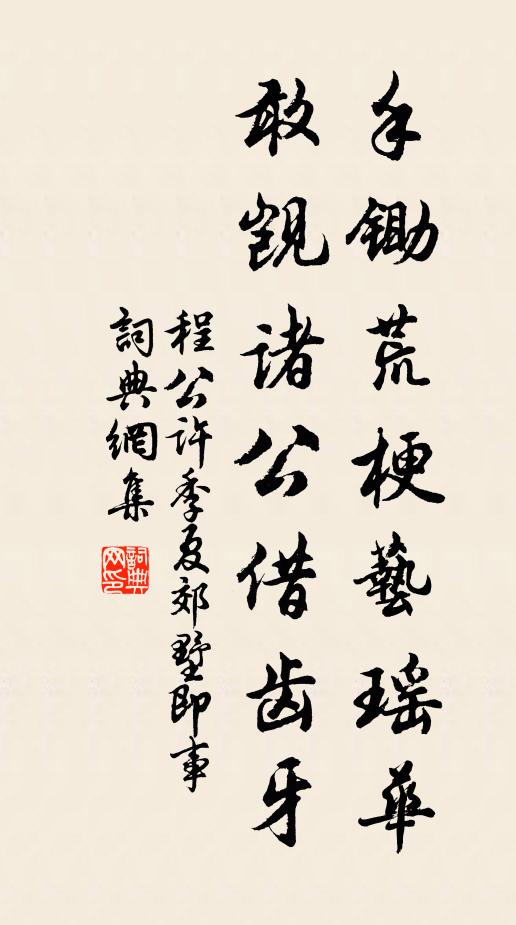 手鋤荒梗藝瑤華
敢覬諸公借齒牙
程公許季夏郊墅即事
詞典網集
詞典網印